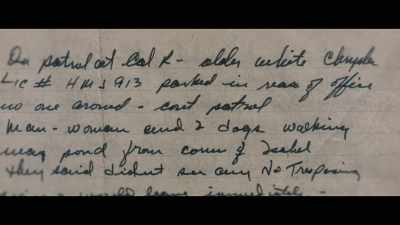 On patrol at Cal R - older white Chrysler
Lic # HMJ 913 parked in rear of office
no one around - cont patrol
Man - woman and 2 dogs walking
near pond from corn of Isabel
they said didnt see any No Trespassing
would leave immediately -